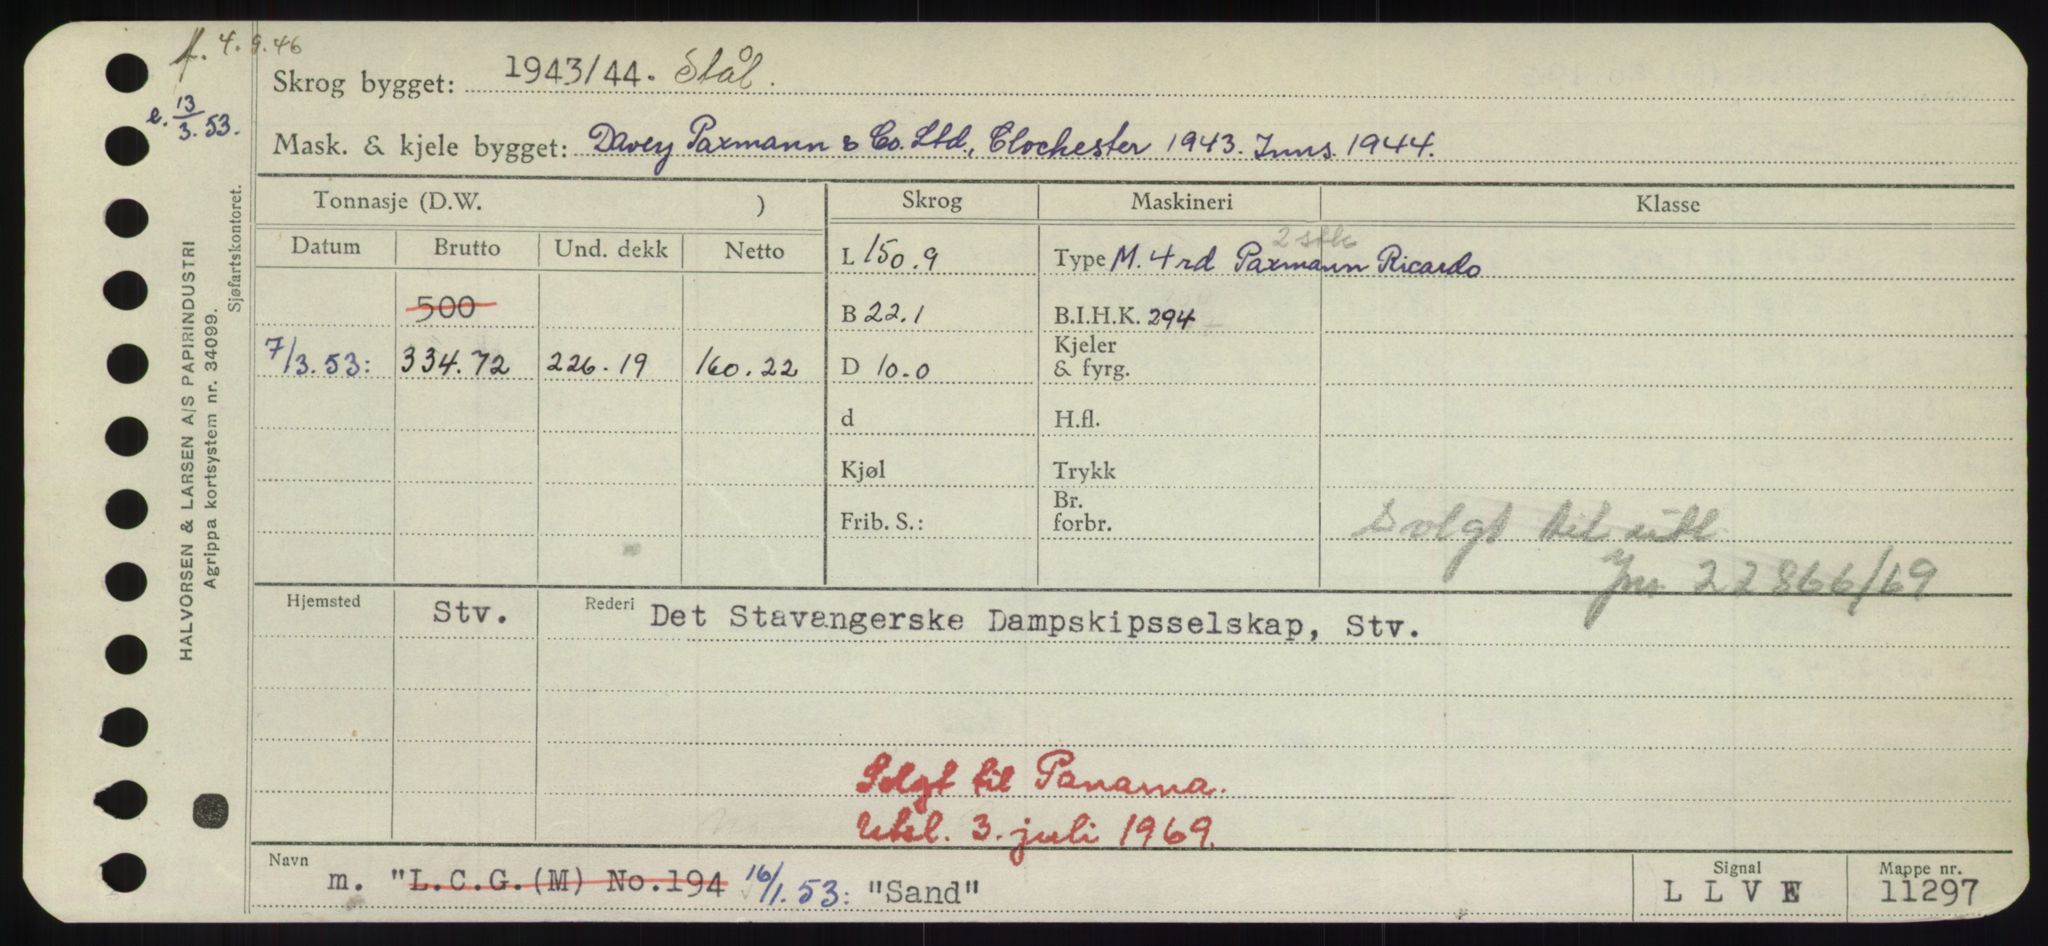 f. 4.9.46
e. 13/3.53.
Skrog bygget: 1943/44. Stål.
Mask. & kjele bygget: Davey Paxmann & Co. Ltd., Clochester 1943. Inns. 1944.
Tonnasje (D.W. ) Skrog Maskineri Klasse
Datum Brutto Und. dekk Netto
L 150.9 Type M. 4 rd 2 stk Paxmann Ricardo
500 B 22.1 B.I.H.K. 294
7/3.53: 334.72 226.19 160.22 D 10.0 Kjeler & fyrg.
d H.fl.
Kjøl Trykk
Frib. S.: Br. forbr.
Solgt til utl.
Jnr 22866/69
Hjemsted Stv. Rederi Det Stavangerske Dampskipsselskap, Stv.
Solgt til Panama.
Utsl. 3. juli 1969.
Navn m. "L.C.G.(M) No.194 16/1.53: "Sand"
Signal L L V E
Mappe nr. 11297
HALVORSEN & LARSEN A/S PAPIRINDUSTRI
Agrippa kortsystem nr. 34099.
Sjøfartskontoret.